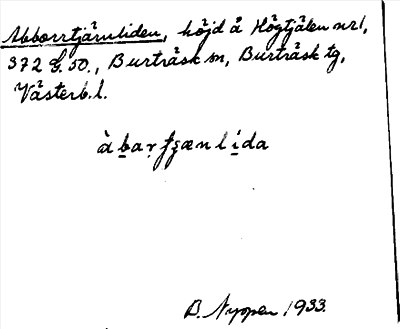 Abborrtjärnliden, höjd å Högtjälen nr 1,
372 G. 50., Burträsk sn, Burträsk tg,
Västerb. l.
B. Nyppen 1933.